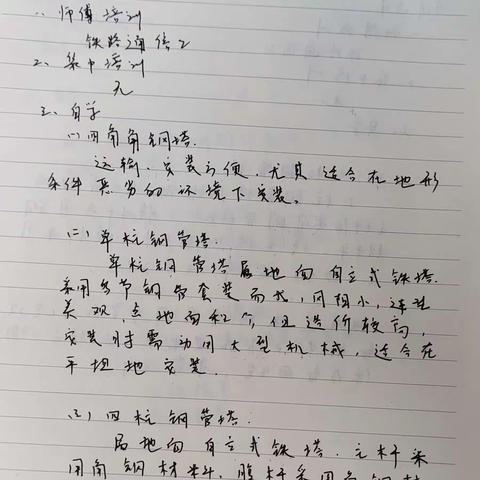 一、师傅培训
铁路通信工
二、集中培训
无
三、自学
(一)四角角钢塔.
运输、安装方便,尤其适合在地形
条件恶劣的环境下安装。
(二)单柱钢管塔.
单柱钢管塔属地面自立式铁塔.
采用多节钢管套装而成,风阻小,造型
美观,占地面积小,但造价较高,
安装时需动用大型机械,适合在
平坦地安装.
(三)四柱钢管塔.
属地面自立式铁塔.主杆采
用角钢材料,腹杆采用角钢材